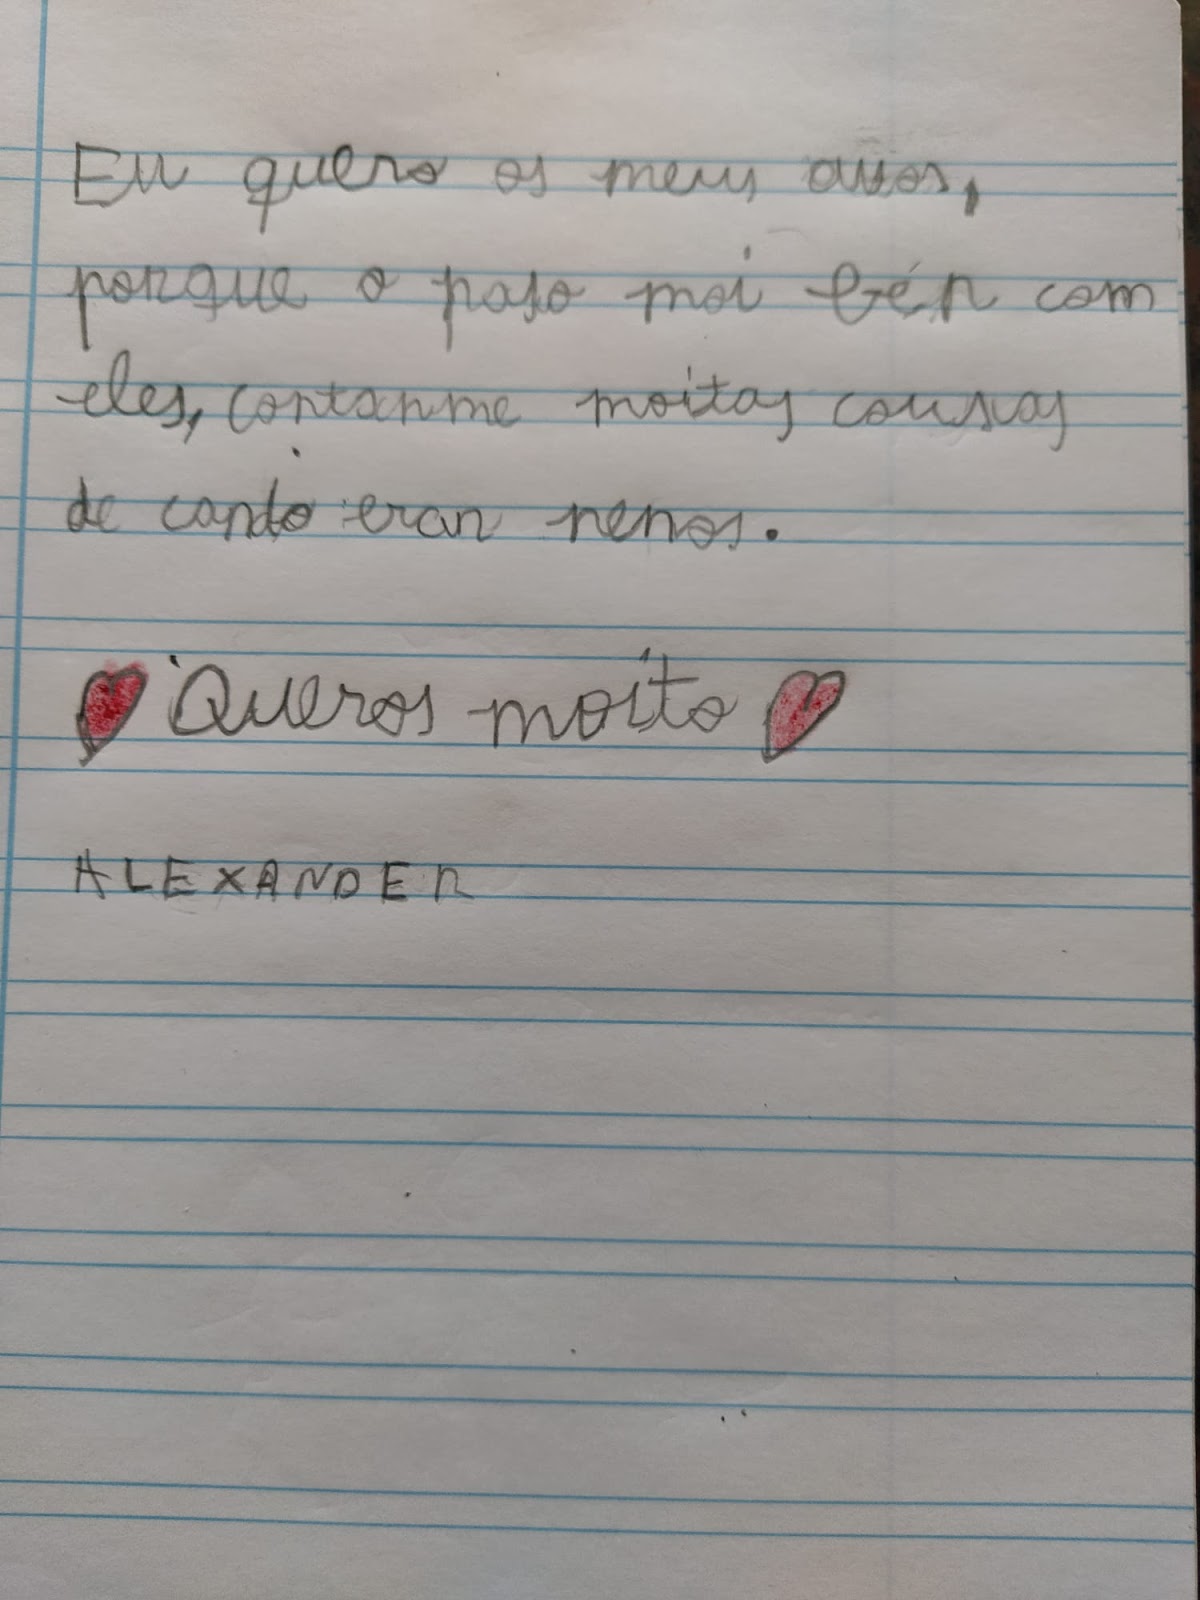 Eu quero os meus avos,
porque o paso moi bén com
eles, contanme moitas cousas
de cando eran nenos.
Queros moito
ALEXANDER